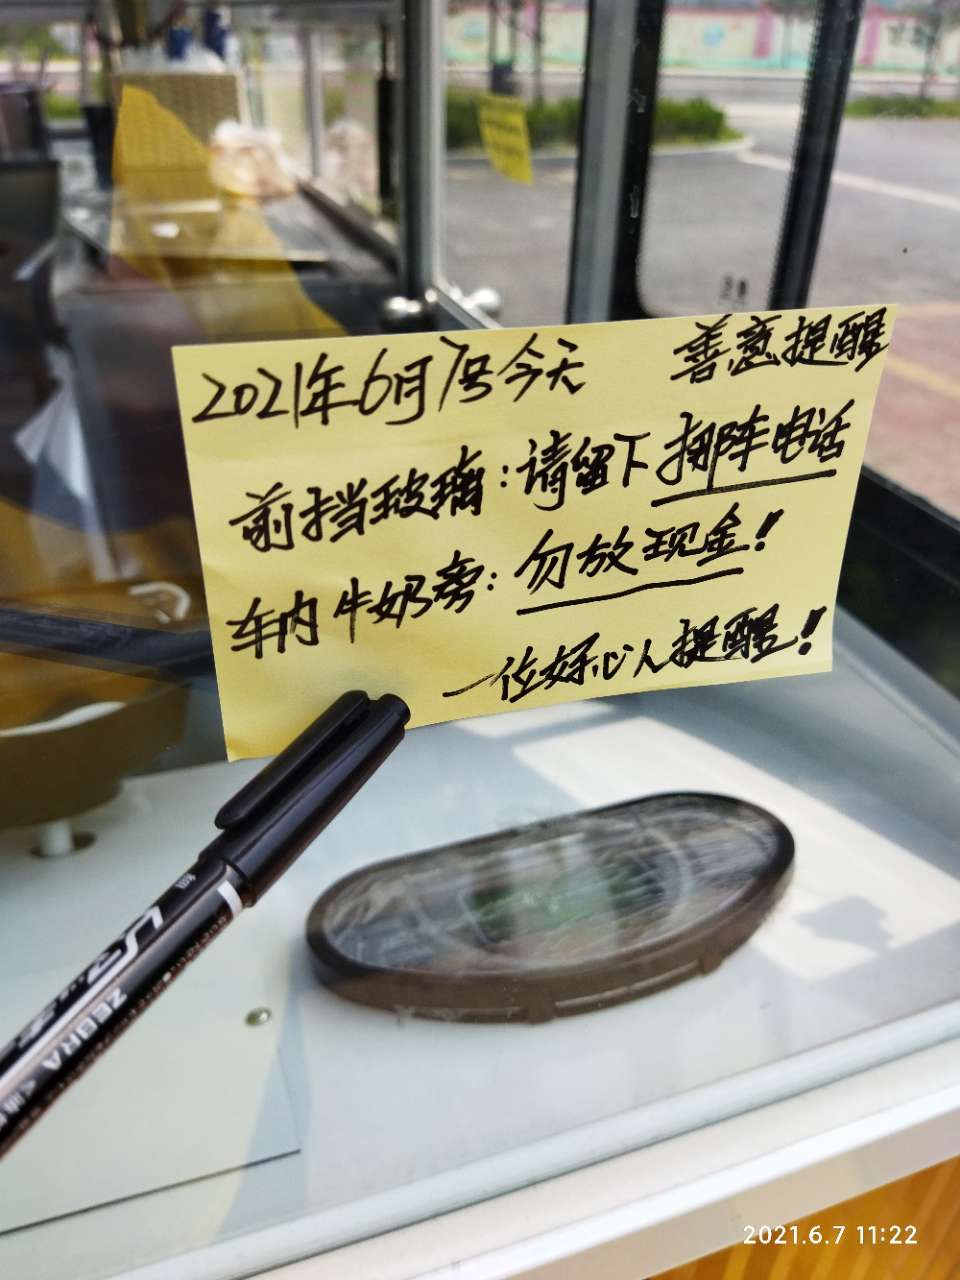 2021年6月7号今天 善意提醒
前挡玻璃：请留下挪车电话
车内牛奶旁：勿放现金！
一位好心人提醒！
ZEBRA
2021.6.7 11:22